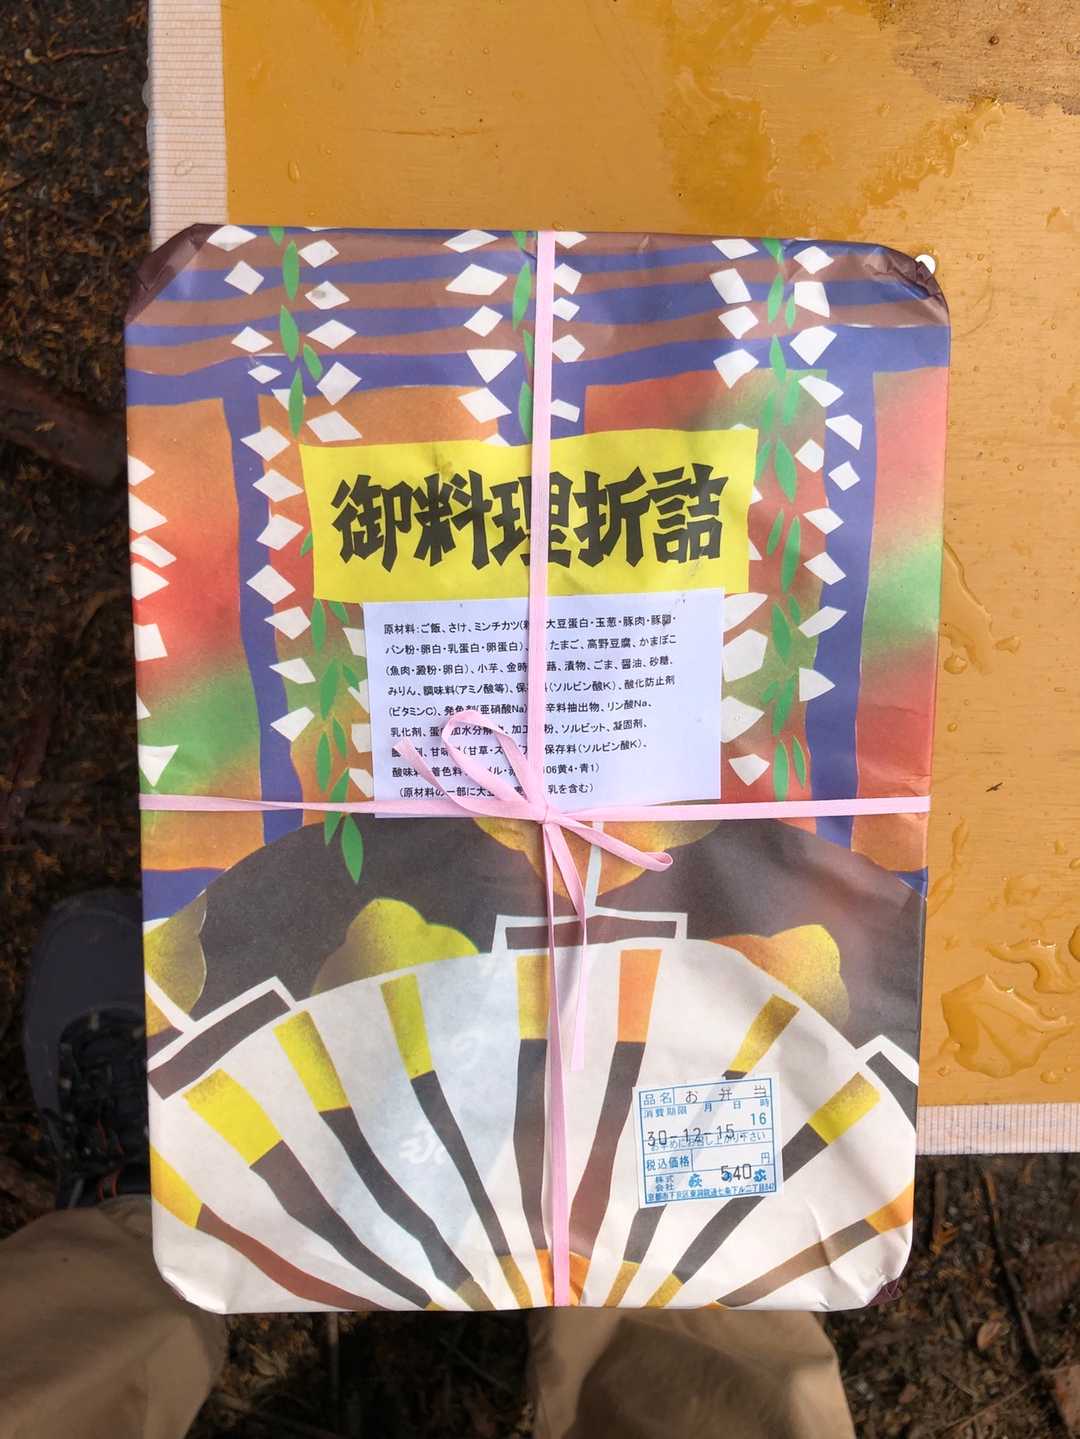 御料理折詰
原材料:ご飯、さけ、ミンチカツ(粒 大豆蛋白・玉葱・豚肉・豚脂・
パン粉・卵白・乳蛋白・卵蛋白)、 たまご、高野豆腐、かまぼこ
(魚肉・澱粉・卵白)、小芋、金時 蕗、漬物、ごま、醤油、砂糖、
みりん、調味料(アミノ酸等)、保 料(ソルビン酸K)、酸化防止剤
(ビタミンC)、発色剤(亜硝酸Na) 辛料抽出物、リン酸Na、
乳化剤、蛋 加水分解 加工 粉、ソルビット、凝固剤、
剤、甘味料(甘草・ス 保存料(ソルビン酸K)、
酸味料 着色料 メル・赤 106黄4・青1)
(原材料の一部に大豆 乳を含む)
品名 お弁当
消費期限 月 日 時
30-12-15 16
お早めにお召し上がり下さい
税込価格 540円
株式会社 萩の家
京都市下京区東洞院通七条下ル二丁目